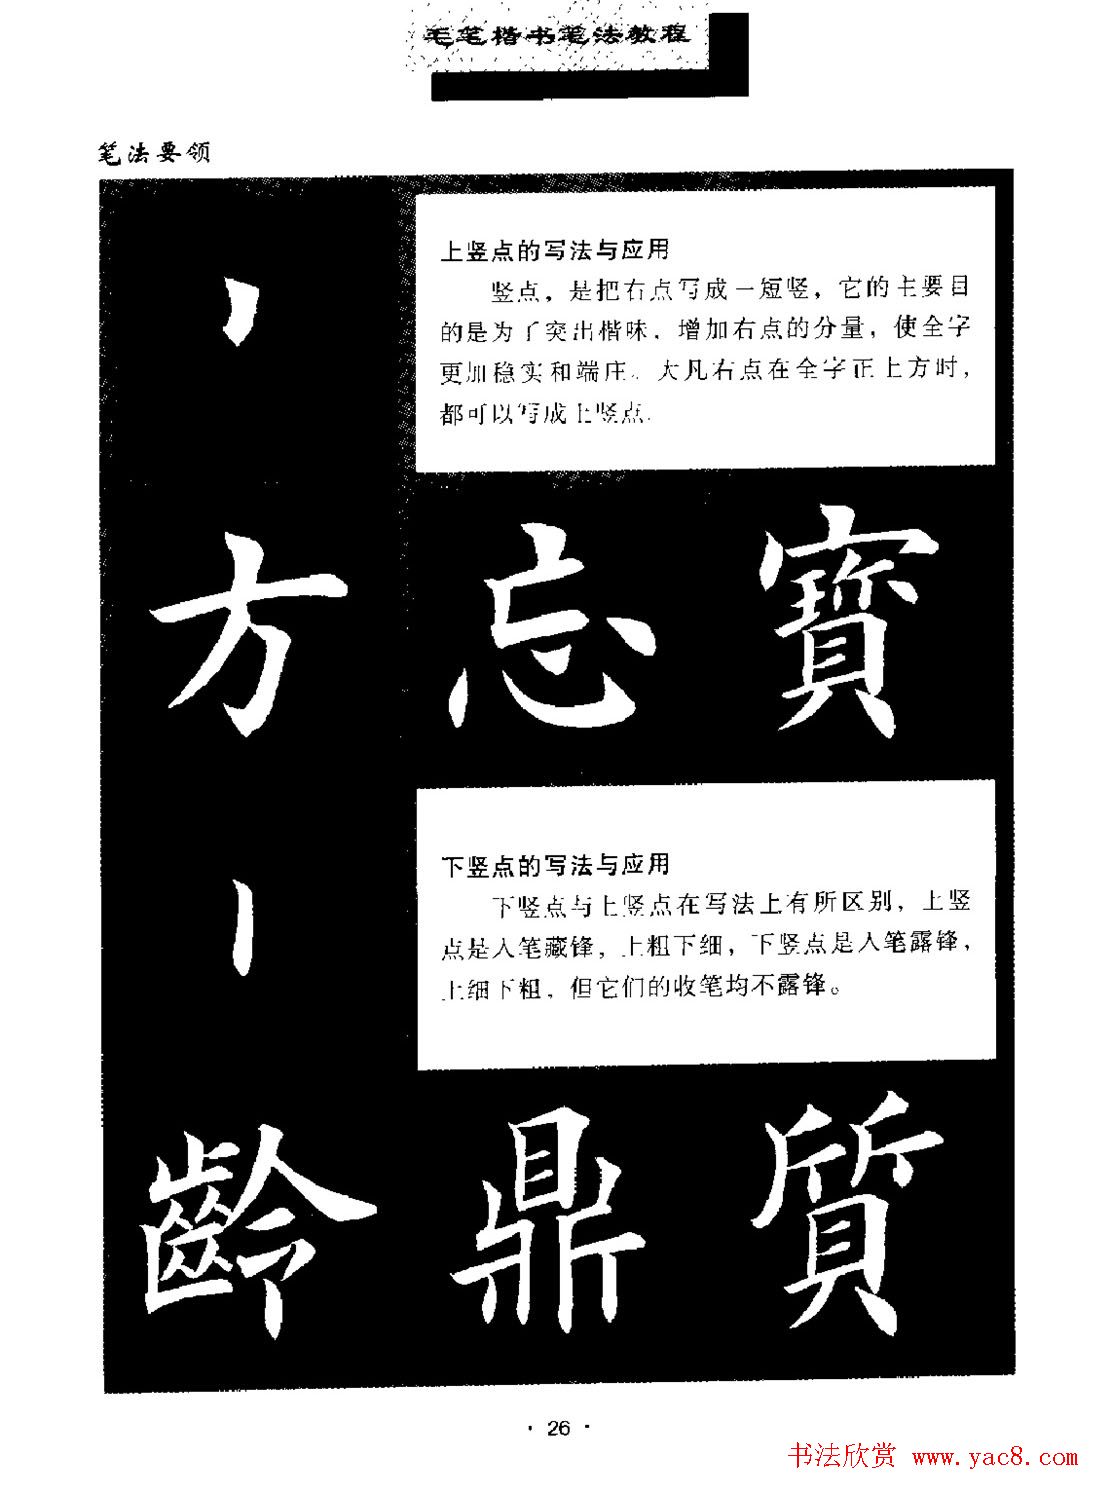 毛笔楷书笔法教程
笔法要领
上竖点的写法与应用
竖点，是把右点写成一短竖，它的主要目
的是为了突出楷味，增加右点的分量，使全字
更加稳实和端庄。大凡右点在全字正上方时，
都可以写成上竖点。
方 忘 寶
下竖点的写法与应用
下竖点与上竖点在写法上有所区别，上竖
点是入笔藏锋，上粗下细，下竖点是入笔露锋，
上细下粗，但它们的收笔均不露锋。
齡 鼎 質
· 26 ·
书法欣赏 www.yac8.com